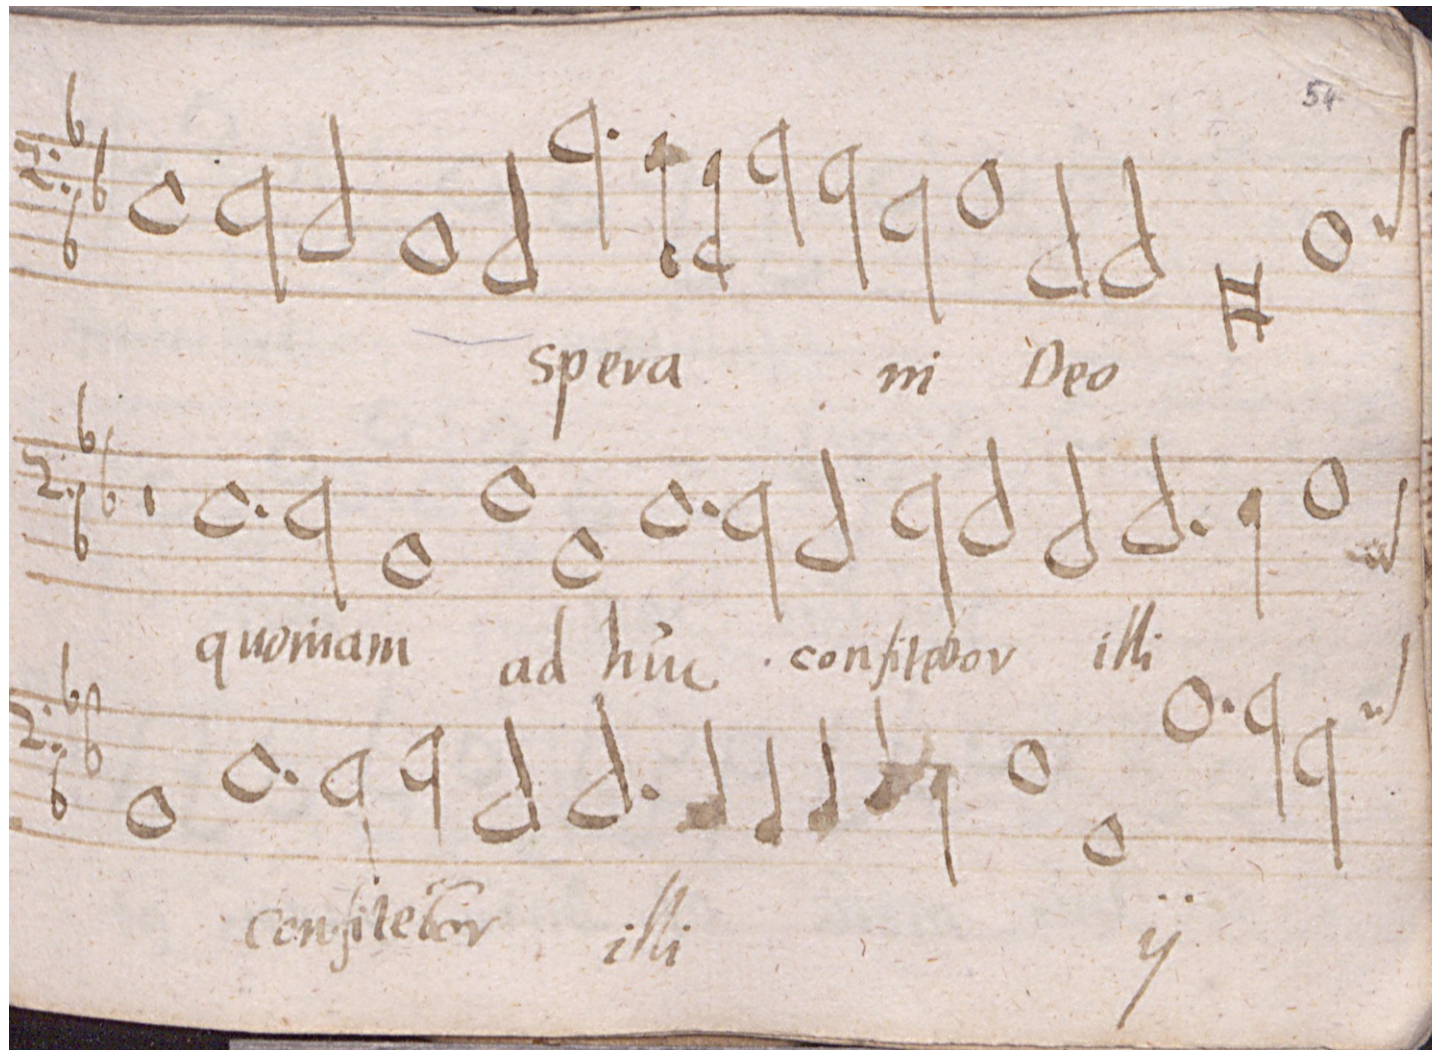 54
spera in Deo
quoniam ad hūc confitebor illi
confitebor illi ij